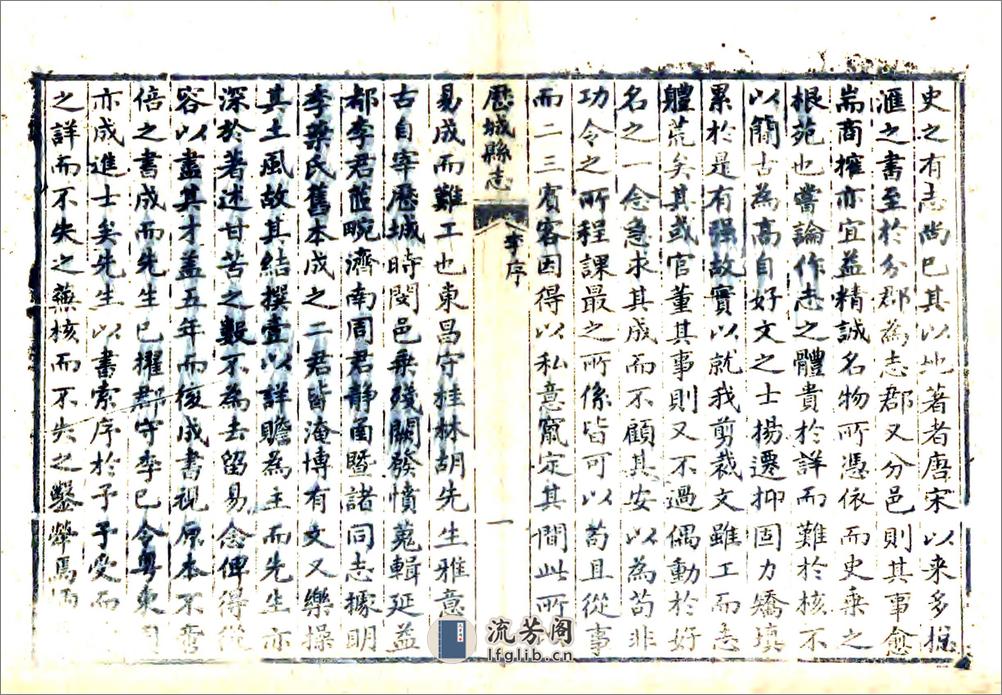 史之有志尚已其以地著者唐宋以来多摠
滙之書至於分郡為志郡又分邑則其事愈
耑商搉亦宜益精誠名物所憑依而史乗之
根苑也嘗論作志之體貴於詳而難於核不
以簡古為高自好文之士揚遷抑固力矯填
累於是有强故實以就我剪裁文雖工而志
體荒矣其或官董其事則又不過偶動於好
名之一念急求其成而不顧其安以為苟非
功令之所程課最之所係皆可以苟且從事
而二三賓客因得以私意竄定其間此所
歷城縣志
李序
一
易成而難工也東昌守桂林胡先生雅意
古自宰歷城時閔邑乗殘闕發憤蒐輯延益
都李君茝畹濟南周君静函暨諸同志據明
季葉氏舊本成之二君皆淹博有文又樂操
其土風故其結撰壹以詳贍為主而先生亦
深於著述甘苦之數不為去留易念俾得從
容以盡其才葢五年而後成書視原本不啻
倍之書成而先生已擢郡守李已令粤東周
亦成進士矣先生以書索序於予予受而
之詳而不失之蕪核而不失之鑿犖焉
流芳阁
lfglib.cn